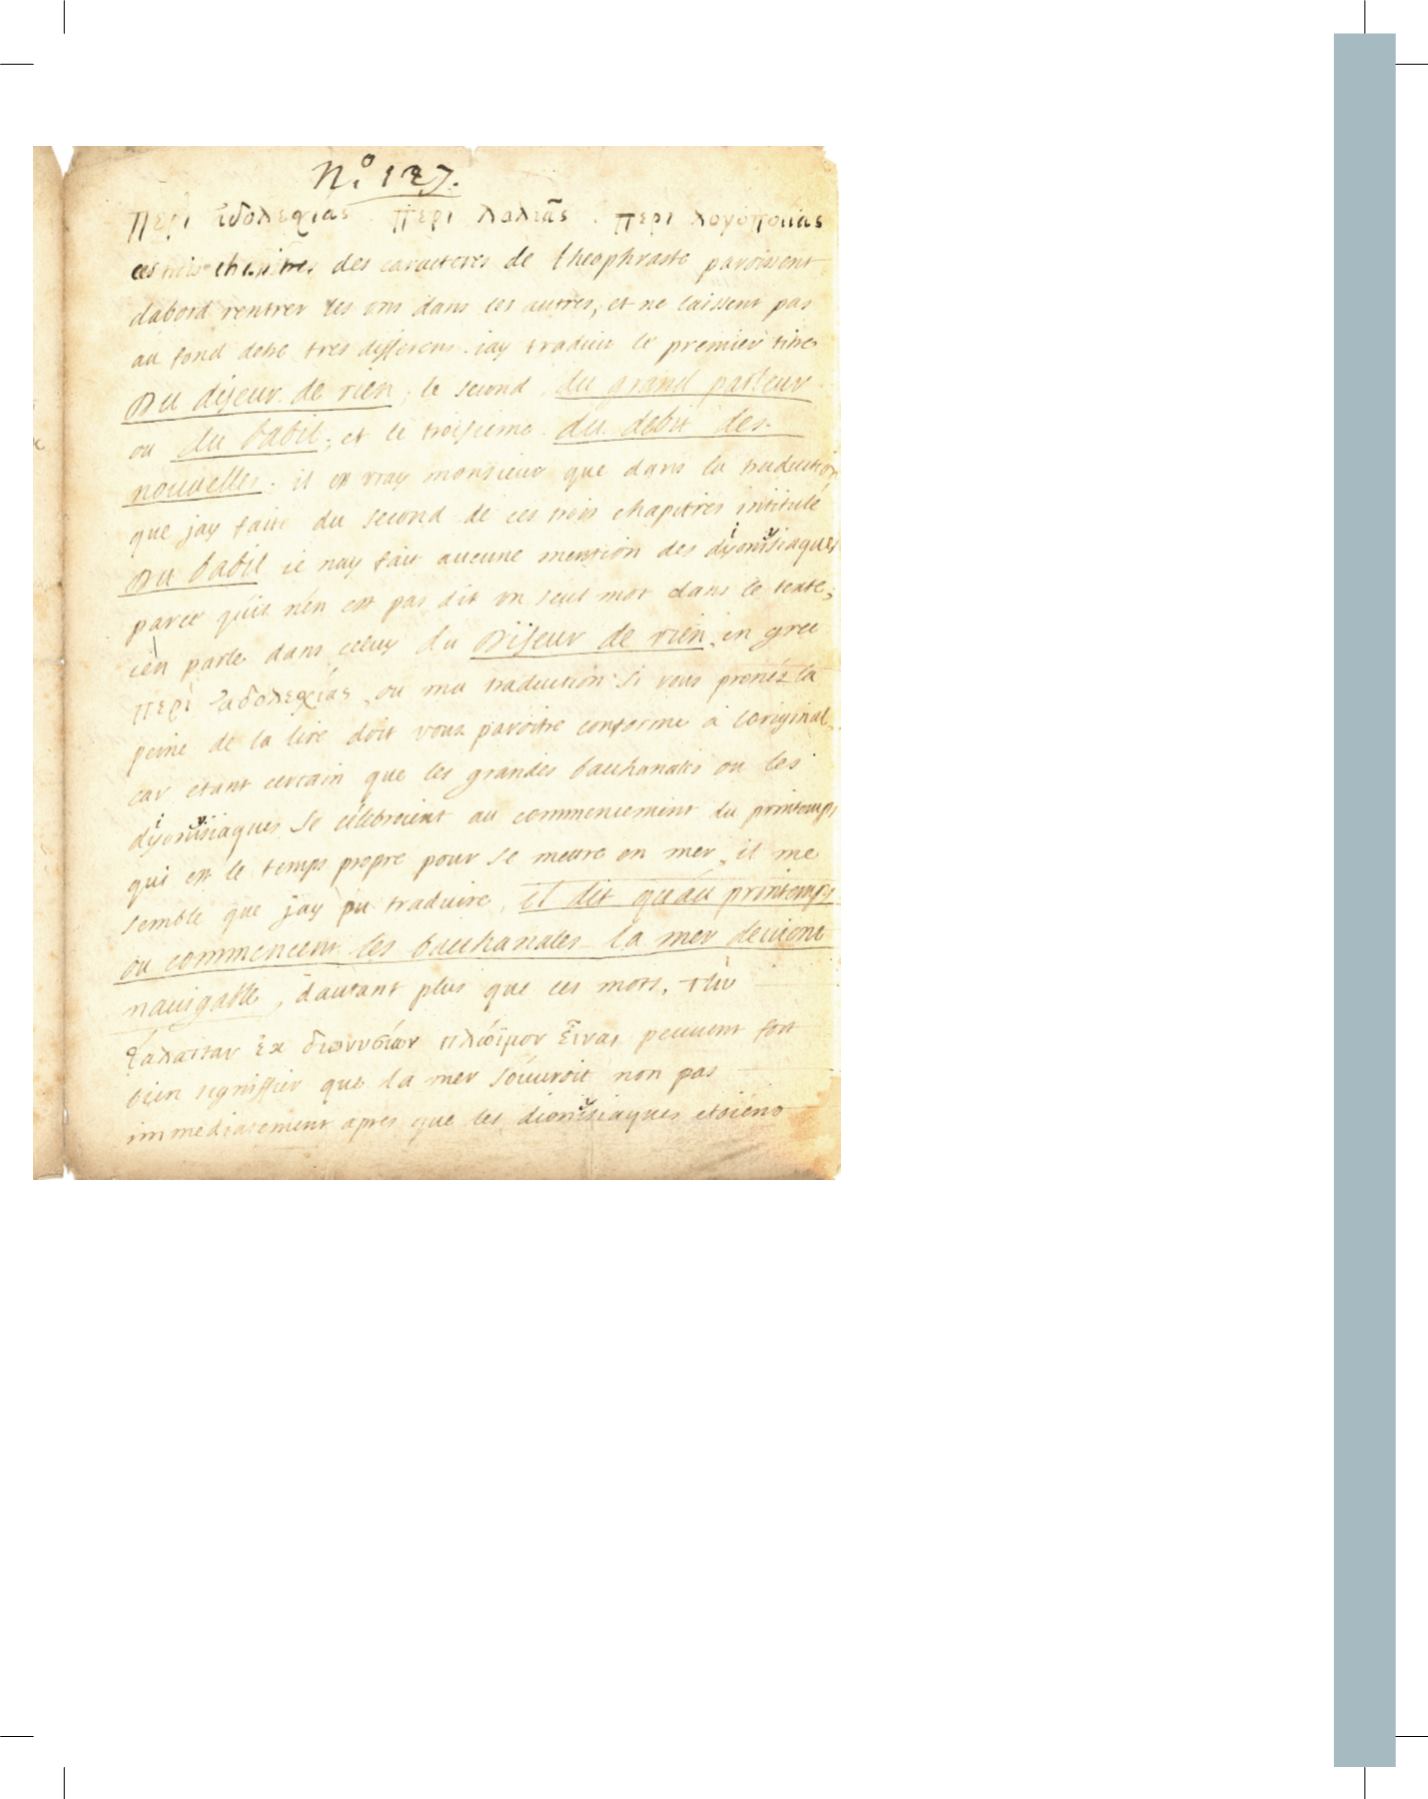 N.º 127.
περι ἀδολεχίας. περι λαλιᾶς. περι λογοποιίας
ces trois chapitres des caracteres de theophraste paroissent
dabord rentrer les uns dans les autres, et ne laissent pas
au fond detre tres differens. iay traduit le premier titre
Du diseur de rien; le second du grand parleur
ou du babil; et le troisieme du debit des
nouvelles. il est vray monsieur que dans la traduction
que jay faite du second de ces trois chapitres intitulé
Du babil ie nay fait aucune mention des dyonisiaques
parce quil nen est pas dit un seul mot dans le texte;
ien parle dans celuy du Diseur de rien, en grec
περὶ ἀδολεχίας, ou ma traduction si vous prenéz la
peine de la lire doit vous paroitre conforme a loriginal,
car etant certain que les grandes bacchanales ou les
dyonisiaques se célebroient au commencement du printemps
qui est le temps propre pour se mettre en mer, il me
semble que jay pu traduire, il dit quau printemps
ou commencent les bacchanales la mer devient
navigable, dautant plus que ces mots, τὴν
θάλατταν ἐκ διονυσίων πλώϊμον εἶναι peuvent fort
bien signiffier que la mer souvroit non pas
immediatement apres que les dionisiaques etoient